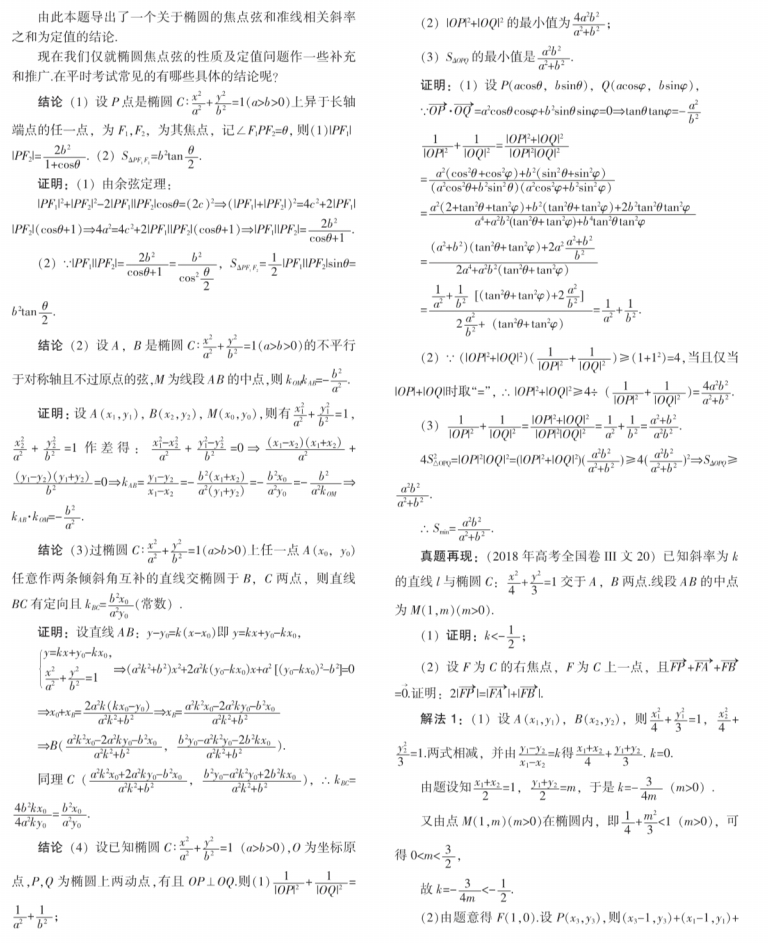 由此本题导出了一个关于椭圆的焦点弦和准线相关斜率
之和为定值的结论.
现在我们仅就椭圆焦点弦的性质及定值问题作一些补充
和推广.在平时考试常见的有哪些具体的结论呢?
结论（1）设 P 点是椭圆 C:x²/a²+y²/b²=1(a>b>0)上异于长轴
端点的任一点，为 F₁,F₂，为其焦点，记∠F₁PF₂=θ,则(1)|PF₁|
|PF₂|=2b²/(1+cosθ).（2）S△PF₁F₂=b²tan θ/2.
证明：（1）由余弦定理：
|PF₁|²+|PF₂|²-2|PF₁||PF₂|cosθ=(2c)²⇒(|PF₁|+|PF₂|)²=4c²+2|PF₁|
|PF₂|(cosθ+1)⇒4a²=4c²+2|PF₁||PF₂|(cosθ+1)⇒|PF₁||PF₂|=2b²/(cosθ+1).
（2）∵|PF₁||PF₂|=2b²/(cosθ+1)=b²/(cos² θ/2)，S△PF₁F₂=1/2|PF₁||PF₂|sinθ=
b²tan θ/2.
结论（2）设 A，B 是椭圆 C:x²/a²+y²/b²=1(a>b>0)的不平行
于对称轴且不过原点的弦,M 为线段 AB 的中点,则 k_OM k_AB=-b²/a².
证明：设 A（x₁,y₁），B（x₂,y₂），M（x₀,y₀）,则有 x₁²/a²+y₁²/b²=1，
x₂²/a²+y₂²/b²=1 作差得：(x₁²-x₂²)/a²+(y₁²-y₂²)/b²=0⇒(x₁-x₂)(x₁+x₂)/a²+
(y₁-y₂)(y₁+y₂)/b²=0⇒k_AB=(y₁-y₂)/(x₁-x₂)=-b²(x₁+x₂)/(a²(y₁+y₂))=-b²x₀/(a²y₀)=-b²/(a²k_OM)⇒
k_AB·k_OM=-b²/a².
结论（3)过椭圆 C:x²/a²+y²/b²=1(a>b>0)上任一点 A（x₀，y₀）
任意作两条倾斜角互补的直线交椭圆于 B，C 两点，则直线
BC 有定向且 k_BC=b²x₀/(a²y₀)(常数）.
证明：设直线 AB：y-y₀=k(x-x₀)即 y=kx+y₀-kx₀,
{y=kx+y₀-kx₀,
x²/a²+y²/b²=1 ⇒(a²k²+b²)x²+2a²k(y₀-kx₀)x+a²[(y₀-kx₀)²-b²]=0
⇒x₀+x_B=2a²k(kx₀-y₀)/(a²k²+b²)⇒x_B=(a²k²x₀-2a²ky₀-b²x₀)/(a²k²+b²)
⇒B((a²k²x₀-2a²ky₀-b²x₀)/(a²k²+b²)，(b²y₀-a²k²y₀-2b²kx₀)/(a²k²+b²)).
同理 C（(a²k²x₀+2a²ky₀-b²x₀)/(a²k²+b²)，(b²y₀-a²k²y₀+2b²kx₀)/(a²k²+b²)），∴k_BC=
4b²kx₀/(4a²ky₀)=b²x₀/(a²y₀).
结论（4）设已知椭圆 C:x²/a²+y²/b²=1（a>b>0）,O 为坐标原
点,P,Q 为椭圆上两动点,有且 OP⊥OQ.则(1)1/|OP|²+1/|OQ|²=
1/a²+1/b²；
（2）|OP|²+|OQ|² 的最小值为 4a²b²/(a²+b²)；
（3）S△OPQ 的最小值是 a²b²/(a²+b²).
证明：（1）设 P(acosθ，bsinθ)，Q(acosφ，bsinφ)，
∵OP→·OQ→=a²cosθcosφ+b²sinθsinφ=0⇒tanθtanφ=-a²/b²
1/|OP|²+1/|OQ|²=(|OP|²+|OQ|²)/(|OP|²|OQ|²)
=(a²(cos²θ+cos²φ)+b²(sin²θ+sin²φ))/((a²cos²θ+b²sin²θ)(a²cos²φ+b²sin²φ))
=(a²(2+tan²θ+tan²φ)+b²(tan²θ+tan²φ)+2b²tan²θtan²φ)/(a⁴+a²b²(tan²θ+tan²φ)+b⁴tan²θtan²φ)
=((a²+b²)(tan²θ+tan²φ)+2a²(a²+b²)/b²)/(2a⁴+a²b²(tan²θ+tan²φ))
=(1/a²+1/b²[(tan²θ+tan²φ)+2a²/b²])/(2a²/b²+(tan²θ+tan²φ))=1/a²+1/b².
（2）∵(|OP|²+|OQ|²)(1/|OP|²+1/|OQ|²)≥(1+1²)=4,当且仅当
|OP|+|OQ|时取“=”，∴|OP|²+|OQ|²≥4÷（1/|OP|²+1/|OQ|²)=4a²b²/(a²+b²).
（3）1/|OP|²+1/|OQ|²=(|OP|²+|OQ|²)/(|OP|²|OQ|²)=1/a²+1/b²=(a²+b²)/(a²b²).
4S²△OPQ=|OP|²|OQ|²=(|OP|²+|OQ|²)(a²b²/(a²+b²))≥4(a²b²/(a²+b²))²⇒S△OPQ≥
a²b²/(a²+b²).
∴S_min=a²b²/(a²+b²).
真题再现：（2018 年高考全国卷 III 文 20）已知斜率为 k
的直线 l 与椭圆 C：x²/4+y²/3=1 交于 A，B 两点.线段 AB 的中点
为 M(1,m)(m>0).
（1）证明：k<-1/2；
（2）设 F 为 C 的右焦点，F 为 C 上一点，且FP→+FA→+FB→
=0→.证明：2|FP→|=|FA→|+|FB→|.
解法 1：（1）设 A（x₁,y₁），B(x₂,y₂)，则 x₁²/4+y₁²/3=1，x₂²/4+
y₂²/3=1.两式相减，并由(y₁-y₂)/(x₁-x₂)=k得(x₁+x₂)/4+(y₁+y₂)/3.k=0.
由题设知(x₁+x₂)/2=1，(y₁+y₂)/2=m，于是 k=-3/(4m)（m>0）.
又由点 M(1,m)(m>0)在椭圆内，即 1/4+m²/3<1（m>0)，可
得 0<m<3/2，
故 k=-3/(4m)<-1/2.
(2)由题意得 F(1,0).设 P(x₃,y₃),则(x₃-1,y₃)+(x₁-1,y₁)+